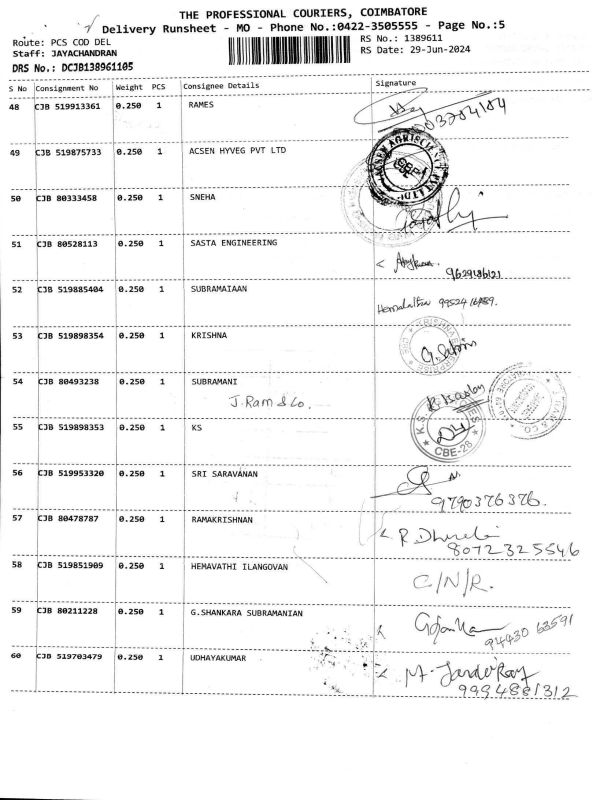 THE PROFESSIONAL COURIERS, COIMBATORE
Delivery Runsheet - MO - Phone No.:0422-3505555 - Page No.:5
Route: PCS COD DEL
RS No.: 1389611
Staff: JAYACHANDRAN
RS Date: 29-Jun-2024
DRS No.: DCJB138961105
S No Consignment No Weight PCS Consignee Details Signature
48 CJB 519913361 0.250 1 RAMES
49 CJB 519875733 0.250 1 ACSEN HYVEG PVT LTD
50 CJB 80333458 0.250 1 SNEHA
51 CJB 80528113 0.250 1 SASTA ENGINEERING
9629186121
52 CJB 519885404 0.250 1 SUBRAMAIAAN
Hemalatha
53 CJB 519898354 0.250 1 KRISHNA
54 CJB 80493238 0.250 1 SUBRAMANI
J. Ram & Co.
55 CJB 519898353 0.250 1 KS
CBE-28
56 CJB 519953320 0.250 1 SRI SARAVANAN
9790376376.
57 CJB 80478787 0.250 1 RAMAKRISHNAN
8072325546
58 CJB 519851909 0.250 1 HEMAVATHI ILANGOVAN
C/N/R.
59 CJB 80211228 0.250 1 G.SHANKARA SUBRAMANIAN
94430 63591
60 CJB 519703479 0.250 1 UDHAYAKUMAR
9994881312